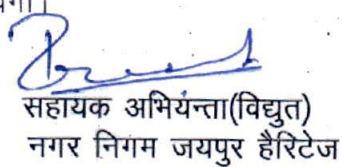 सहायक अभियंन्ता(विद्युत)
नगर निगम जयपुर हैरिटेज